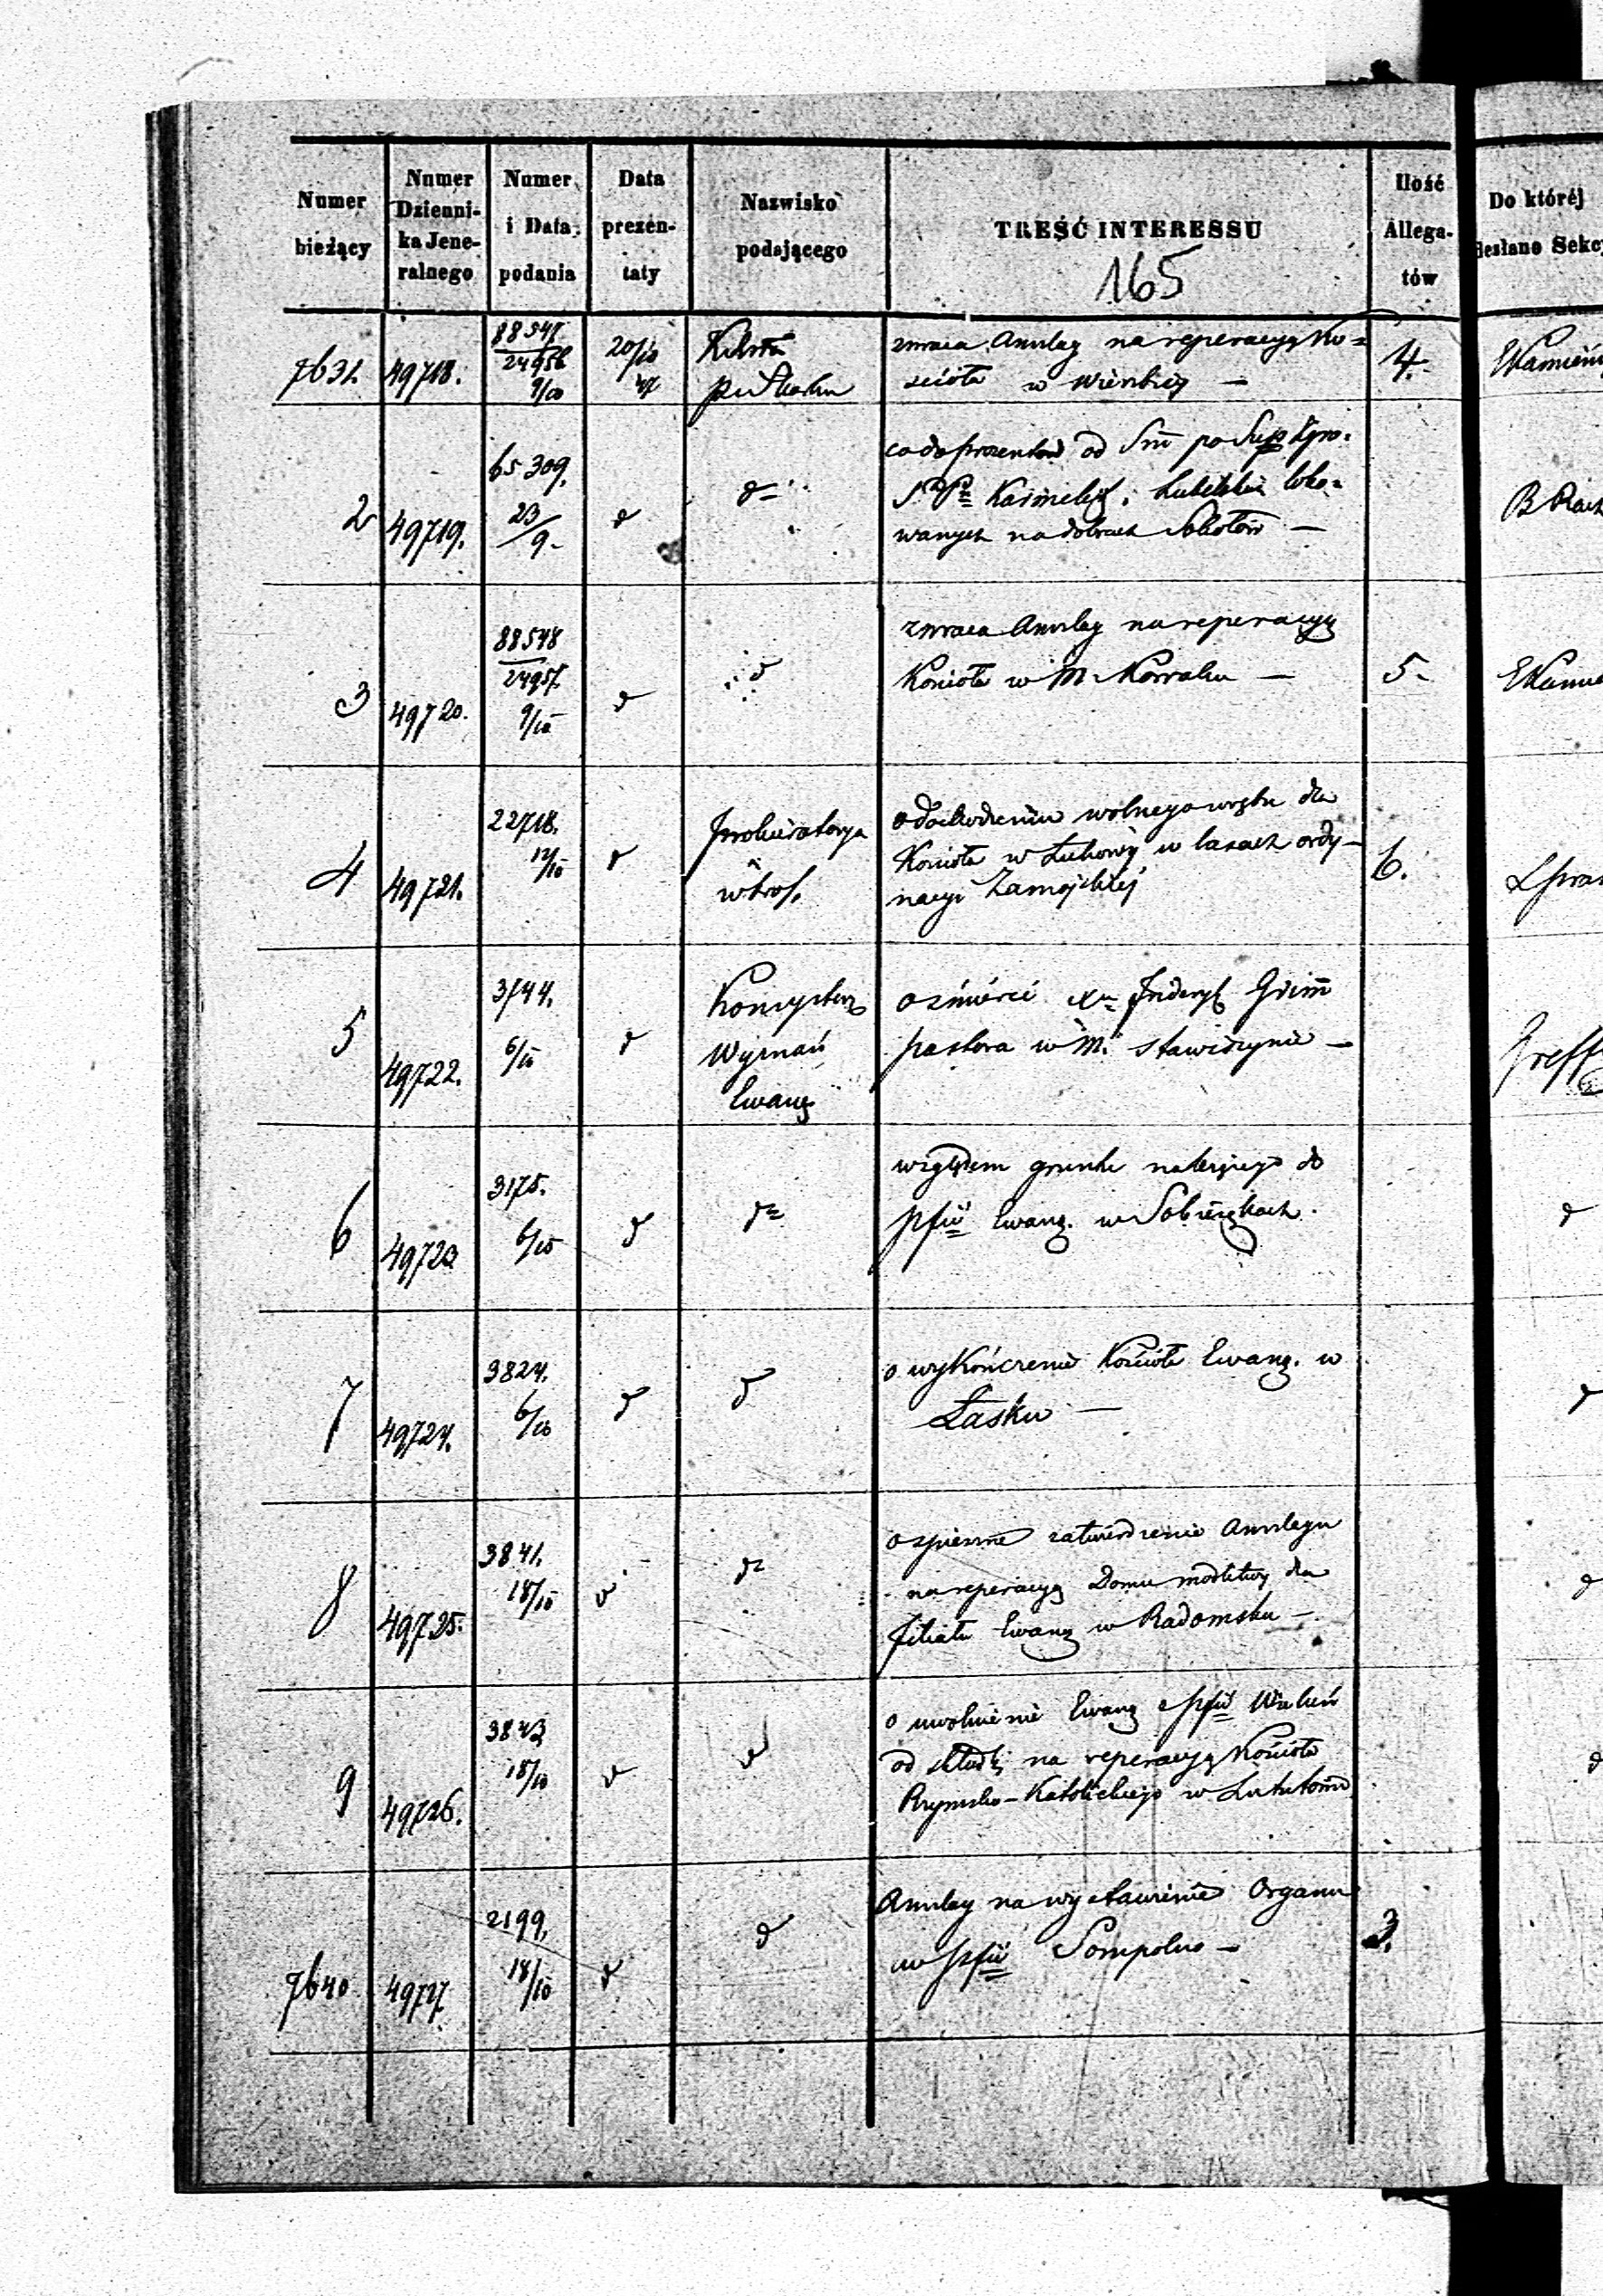 Numer bieżący
Numer Dzienni- ka Jene- ralnego
Numer i Data podania
Data prezen- taty
Nazwisko podającego
TREŚĆ INTERESSU
Ilość Allega- tów
Do któréj
165
7631. 49718. 88547. 24956 9/10 20/10 47
zwraca Anszlag na reperacyą Ko=
ścioła w 4.
2 49719. 65309. 23/9. d d=
wanych na dobrach
3 49720. 88548 24957. 9/10 d d
zwraca Anszlag na reperacyą
Kościoła w M. 5.
4 49721. 22718. 12/10 d Prokuratorya w Król.
o dochodzeniu wolnego wrębu dla
Kościoła w w lasach ordy-
nacyi Zamojskiej 6.
5 49722. 3744. 6/10 d Konsystorz Wyznań Ewang
o śmierci Xa Frideryk Grim
pastora w M. Stawiszynie —
6 49723 3175. 6/10 d d=
względem gruntu należącego do
pfii Ewang. w
7 49724. 3824. 6/10 d d
o wykończenie Kościoła Ewang. w
Łasku —
8 49725. 3841. 18/10 d d=
o spieszne zatwierdzenie Anszlagu
na reperacyą Domu modlitwy dla
filiału Ewang w Radomsku —
9 49726. 3843 18/10 d d
o uwolnienie Ewang z pfii Wieluń
od składki na reperacyą Kościoła
Rzymsko-Katolickiego w
7640 49727. 2199. 18/10 d d
Anszlag na wystawienie Organu
w pfii Sompolno — 3.